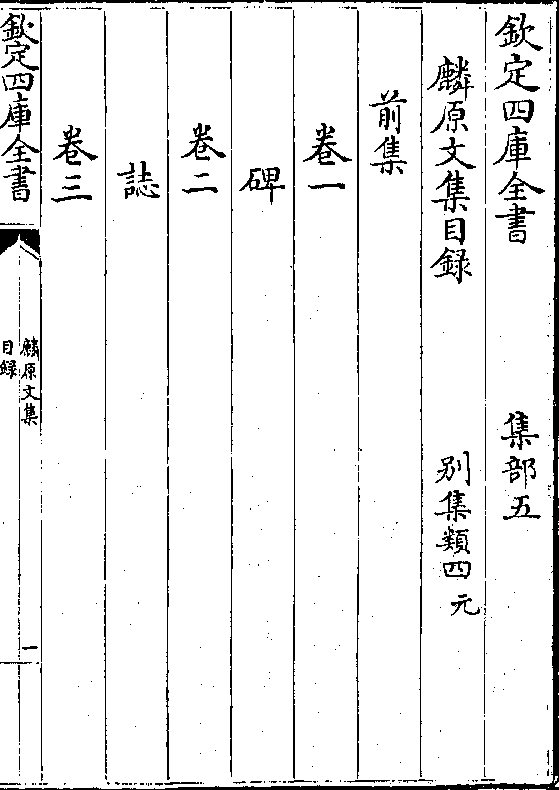 欽定四庫全書 集部五
麟原文集目録 别集類四元
前集
卷一
碑
卷二
誌
卷三
欽定四庫全書
麟原文集
目録
一